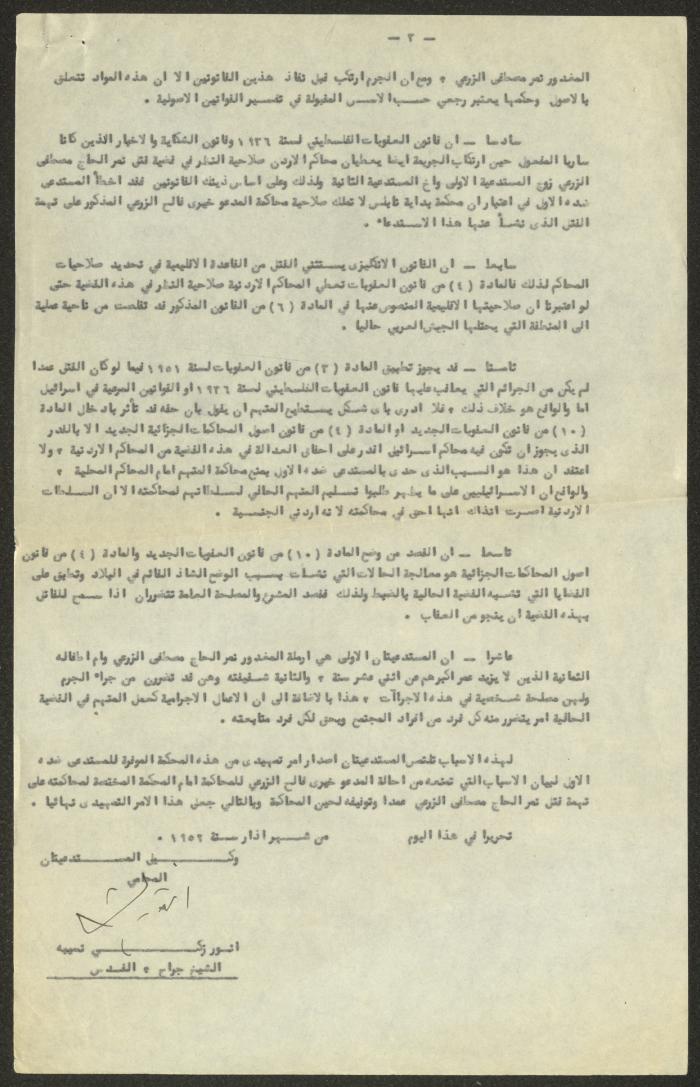 — ٢ —
المغدور نمر مصطفى الزرعي ؟ ومع ان الجرم ارتكب قبل نفاذ هذين القانونين الا ان هذه المواد تتعلق
بالاصول وحكمها يعتبر رجعي حسب الاسس المقبولة في تفسير القوانين الاصولية .
سادسا — ان قانون العقوبات الفلسطيني لسنة ١٩٣٦ وقانون الشكاية والاخبار الذين كانا
ساريا المفعول حين ارتكاب الجريمة ايضا يعطيان محاكم الاردن صلاحية النظر في قضية قتل نمر الحاج مصطفى
الزرعي زوج المستدعية الاولى واخ المستدعية الثانية ولذلك وعلى اساس ذينك القانونين فقد اخطأ المستدعى
ضده الاول في اعتبار ان محكمة بداية نابلس لا تملك صلاحية محاكمة المدعو خيرى فالح الزرعي المذكور على تهمة
القتل الذى نشأ عنها هذا الاستدعاء .
سابعا — ان القانون الانكليزى يستثني القتل من القاعدة الاقليمية في تحديد صلاحيات
المحاكم لذلك فالمادة ( ٤ ) من قانون العقوبات تعطي المحاكم الاردنية صلاحية النظر في هذه القضية حتى
لو اعتبرنا ان صلاحيتها الاقليمية المنصوص عنها في المادة ( ٦ ) من القانون المذكور قد تقلصت من ناحية عملية
الى المنطقة التي يحتلها الجيش العربي حاليا .
ثامنا — قد يجوز تطبيق المادة ( ٣ ) من قانون العقوبات لسنة ١٩٥١ فيما لو كان القتل عمدا
لم يكن من الجرائم التي يعاقب عليها قانون العقوبات الفلسطيني لسنة ١٩٣٦ او القوانين المرعية في اسرائيل
اما والواقع هو خلاف ذلك ؟ فلا ادرى باى شكل يستطيع المتهم ان يقول بان حقه قد تأثر بادخال المادة
( ١٠ ) من قانون العقوبات الجديد او المادة ( ٤ ) من قانون اصول المحاكمات الجزائية الجديد الا بالقدر
الذى يجوز ان تكون فيه محاكم اسرائيل اقدر على احقاق العدالة في هذه القضية من المحاكم الاردنية ؟ ولا
اعتقد ان هذا هو السبب الذى حدى بالمستدعى ضده الاول بمنع محاكمة المتهم امام المحاكم المحلية ؟
والواقع ان الاسرائيليين على ما يظهر طلبوا تسليم المتهم الحالي لسلطاتهم لمحاكمته الا ان السلطات
الاردنية اصرت انذاك انها احق في محاكمته لانه اردني الجنسية .
تاسعا — ان القصد من وضع المادة ( ١٠ ) من قانون العقوبات الجديد والمادة ( ٤ ) من قانون
اصول المحاكمات الجزائية هو معالجة الحالات التي نشأت بسبب الوضع الشاذ القائم في البلاد وتطبق على
القضايا التي تشبه القضية الحالية بالضبط ولذلك فقصد المشرع والمصلحة العامة تتضرران اذا سمح للقاتل
بهذه القضية ان ينجو من العقاب .
عاشرا — ان المستدعيتان الاولى هي ارملة المغدور نمر الحاج مصطفى الزرعي وام اطفاله
الثمانية الذين لا يزيد عمر اكبرهم عن اثني عشر سنة ؟ والثانية شقيقته وهن قد تضررن من جراء الجرم
ولهن مصلحة شخصية في هذه الاجراآت ؟ هذا بالاضافة الى ان الاعمال الاجرامية كعمل المتهم في القضية
الحالية امر يتضرر منه كل فرد من افراد المجتمع ويحق لكل فرد متابعته .
لهذه الاسباب تلتمس المستدعيتان اصدار امر تمهيدى من هذه المحكمة الموقرة للمستدعى ضده
الاول لبيان الاسباب التي تمنعه من احالة المدعو خيرى فالح الزرعي للمحاكمة امام المحكمة المختصة لمحاكمته على
تهمة قتل نمر الحاج مصطفى الزرعي عمدا وتوقيفه لحين المحاكمة وبالتالي جعل هذا الامر التمهيدى نهائيا .
تحريرا في هذا اليوم من شهر اذار سنة ١٩٥٢ .
وكيل المستدعيتان
المحامي
انور زكي نسيبه
الشيخ جراح ؟ القدس